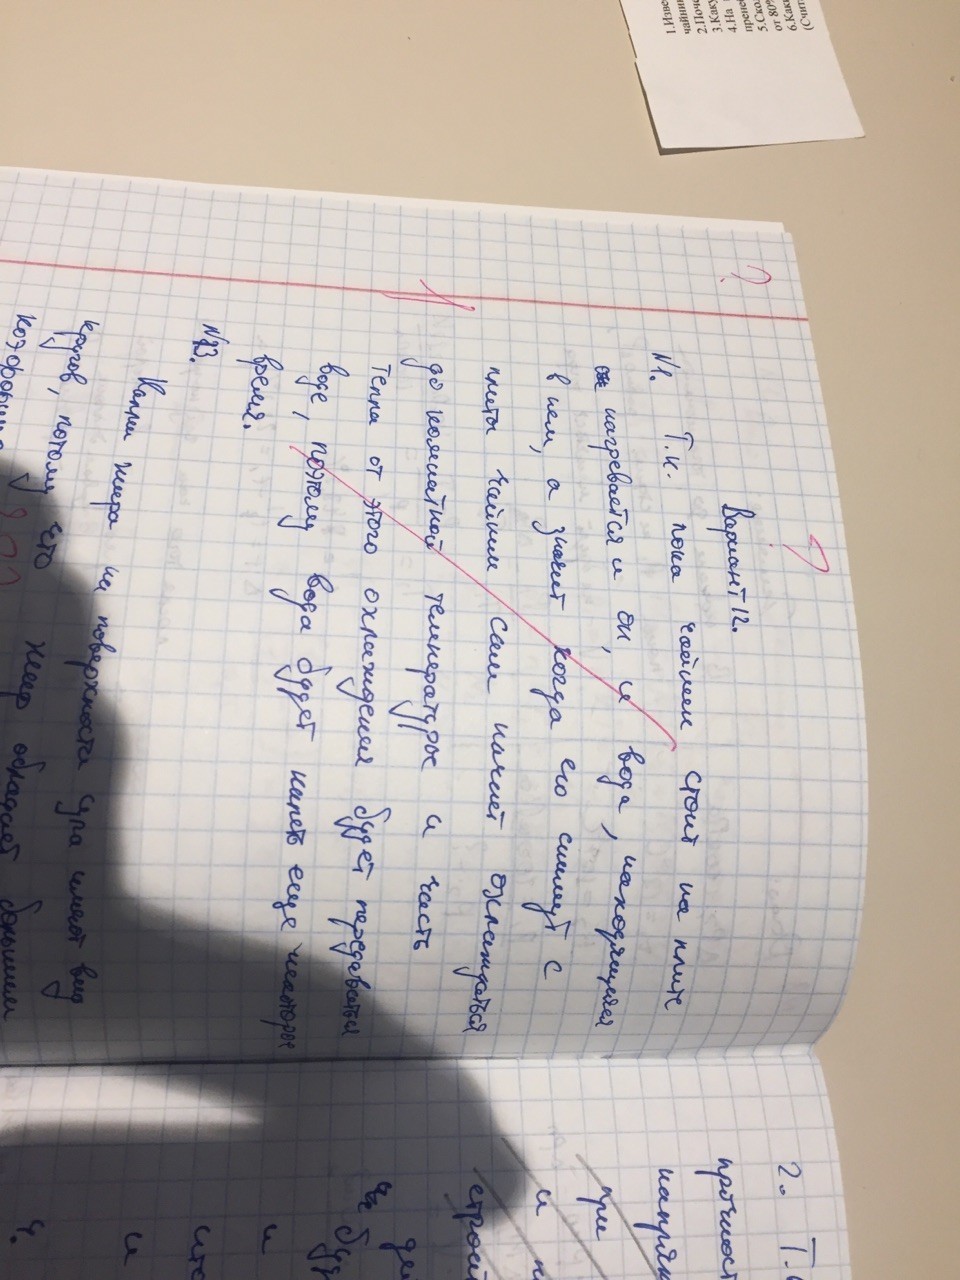 1.Изве
чайни
2.Поч
3.Как
4.На
прене
5.Ско
от 80
6.Как
(Счит
Вариант 12.
№1. Т.к. пока чайник стоит на плите
нагревается и он, и вода, находящаяся
в нем, а значит когда его снимут с
плиты чайник сам начнет охлаждаться
до комнатной температуры и часть
тепла от этого охлаждения будет передаваться
воде, поэтому вода будет кипеть еще некоторое
время.
№3.
Капли жира на поверхности супа имеют вид
кругов, потому что жир обладает большим
2. Т.к
прочност
напряж
при
и
строи
и
и
ч.